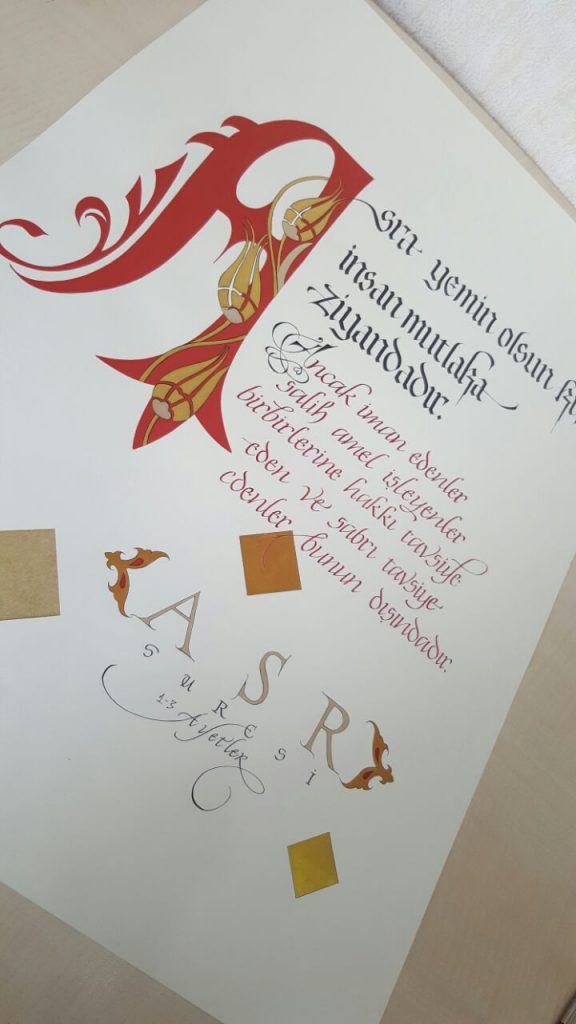 Asra yemin olsun ki,
insan mutlaka
ziyandadır.
Ancak iman edenler
salih amel işleyenler
birbirlerine hakkı tavsiye
eden ve sabrı tavsiye
edenler bunun dışındadır.
ASR
SuResi
1-3 Ayetler